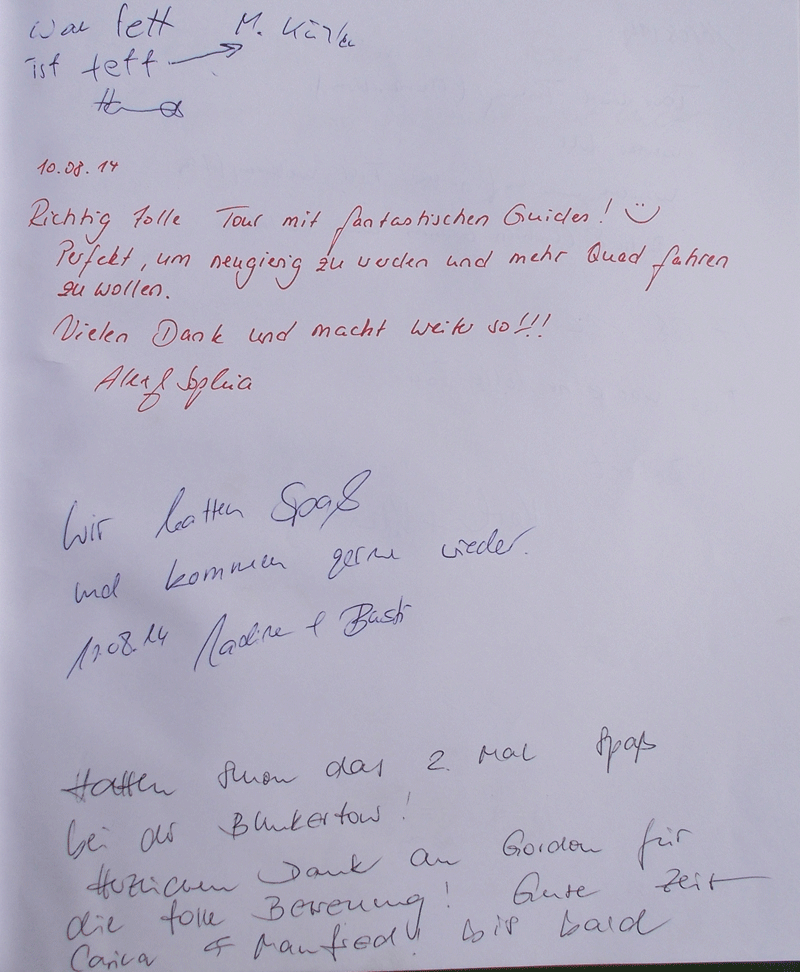 War fett M. Kü
ist fett
10.08.14
Richtig tolle Tour mit fantastischen Guides!
Perfekt, um neugierig zu werden und mehr Quad fahren
zu wollen.
Vielen Dank und macht weiter so!!!
Alex & Sophia
Wir hatten Spaß
und kommen gerne wieder.
17.08.14 Nadine & Basti
Hatten schon das 2. Mal Spaß
bei der Bunkertour!
Herzlichen Dank an Gordon für
die tolle Betreuung! Gute Zeit
Carica & Manfred! bis bald